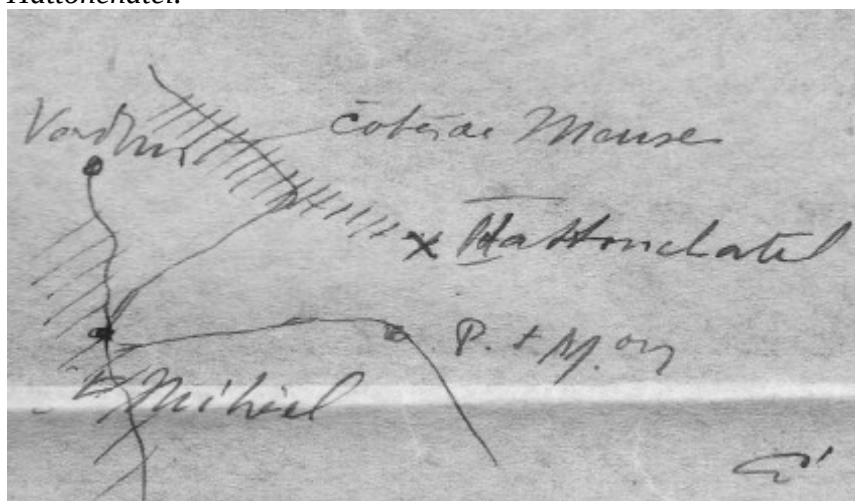 Hattonchatel.
Verdun
Côtes de Meuse
Hattonchatel
P. à M.on
St Mihiel